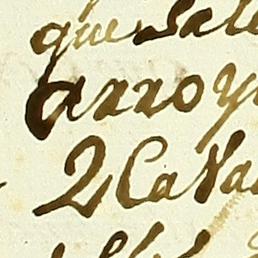 que sale
arroy
2 Cava